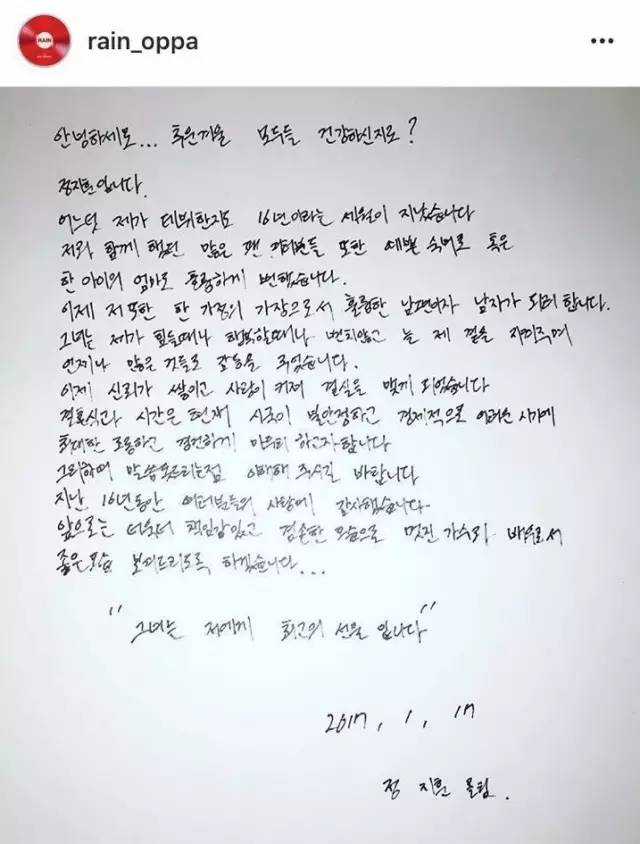 rain_oppa
RAIN
안녕하세요... 추운겨울 모두들 건강하신지요?
정지훈입니다.
어느덧 제가 데뷔한지도 16년이라는 세월이 지났습니다
저와 함께 했던 많은 팬 여러분들 또한 예쁜 숙녀로 혹은
한 아이의 엄마로 훌륭하게 변했습니다.
이제 저 또한 한 가정의 가장으로서 훌륭한 남편이자 남자가 되려 합니다.
그녀는 제가 힘들때나 행복할때나 변치않고 늘 제 곁을 지켜주며
언제나 많은 것들로 감동을 주었습니다.
이제 신뢰가 쌓이고 사랑이 커져 결실을 맺게 되었습니다
결혼식과 시간은 현재 시국이 불안정하고 경제적으로 어려운 시기에
최대한 조용하고 경건하게 마무리 하고자합니다
그리하여 말씀못드리는점 이해해 주시길 바랍니다
지난 16년동안 여러분들의 사랑에 감사했습니다.
앞으로는 더욱더 책임감있고 겸손한 모습으로 멋진 가수와 배우로서
좋은모습 보여드리도록 하겠습니다...
"그녀는 저에게 최고의 선물 입니다"
2017, 1, 17
정 지훈 올림.